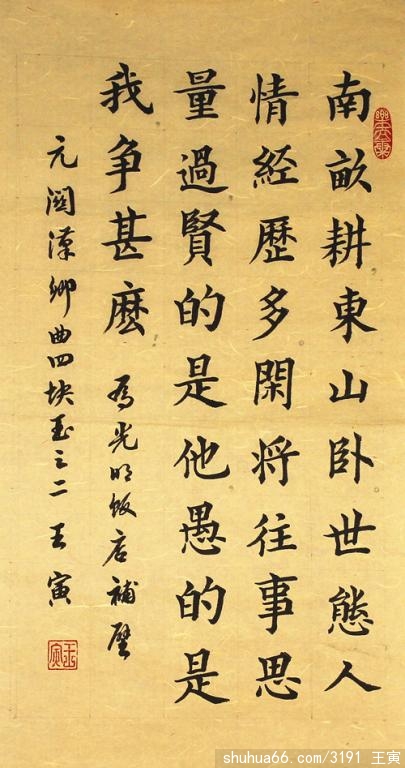 南畝耕東山卧世態人
情經歷多閑將往事思
量過賢的是他愚的是
我争甚麽 為光明飯店補壁
元關漢卿曲四块玉之二 王寅
王寅
shuhua66.com/3191 王寅